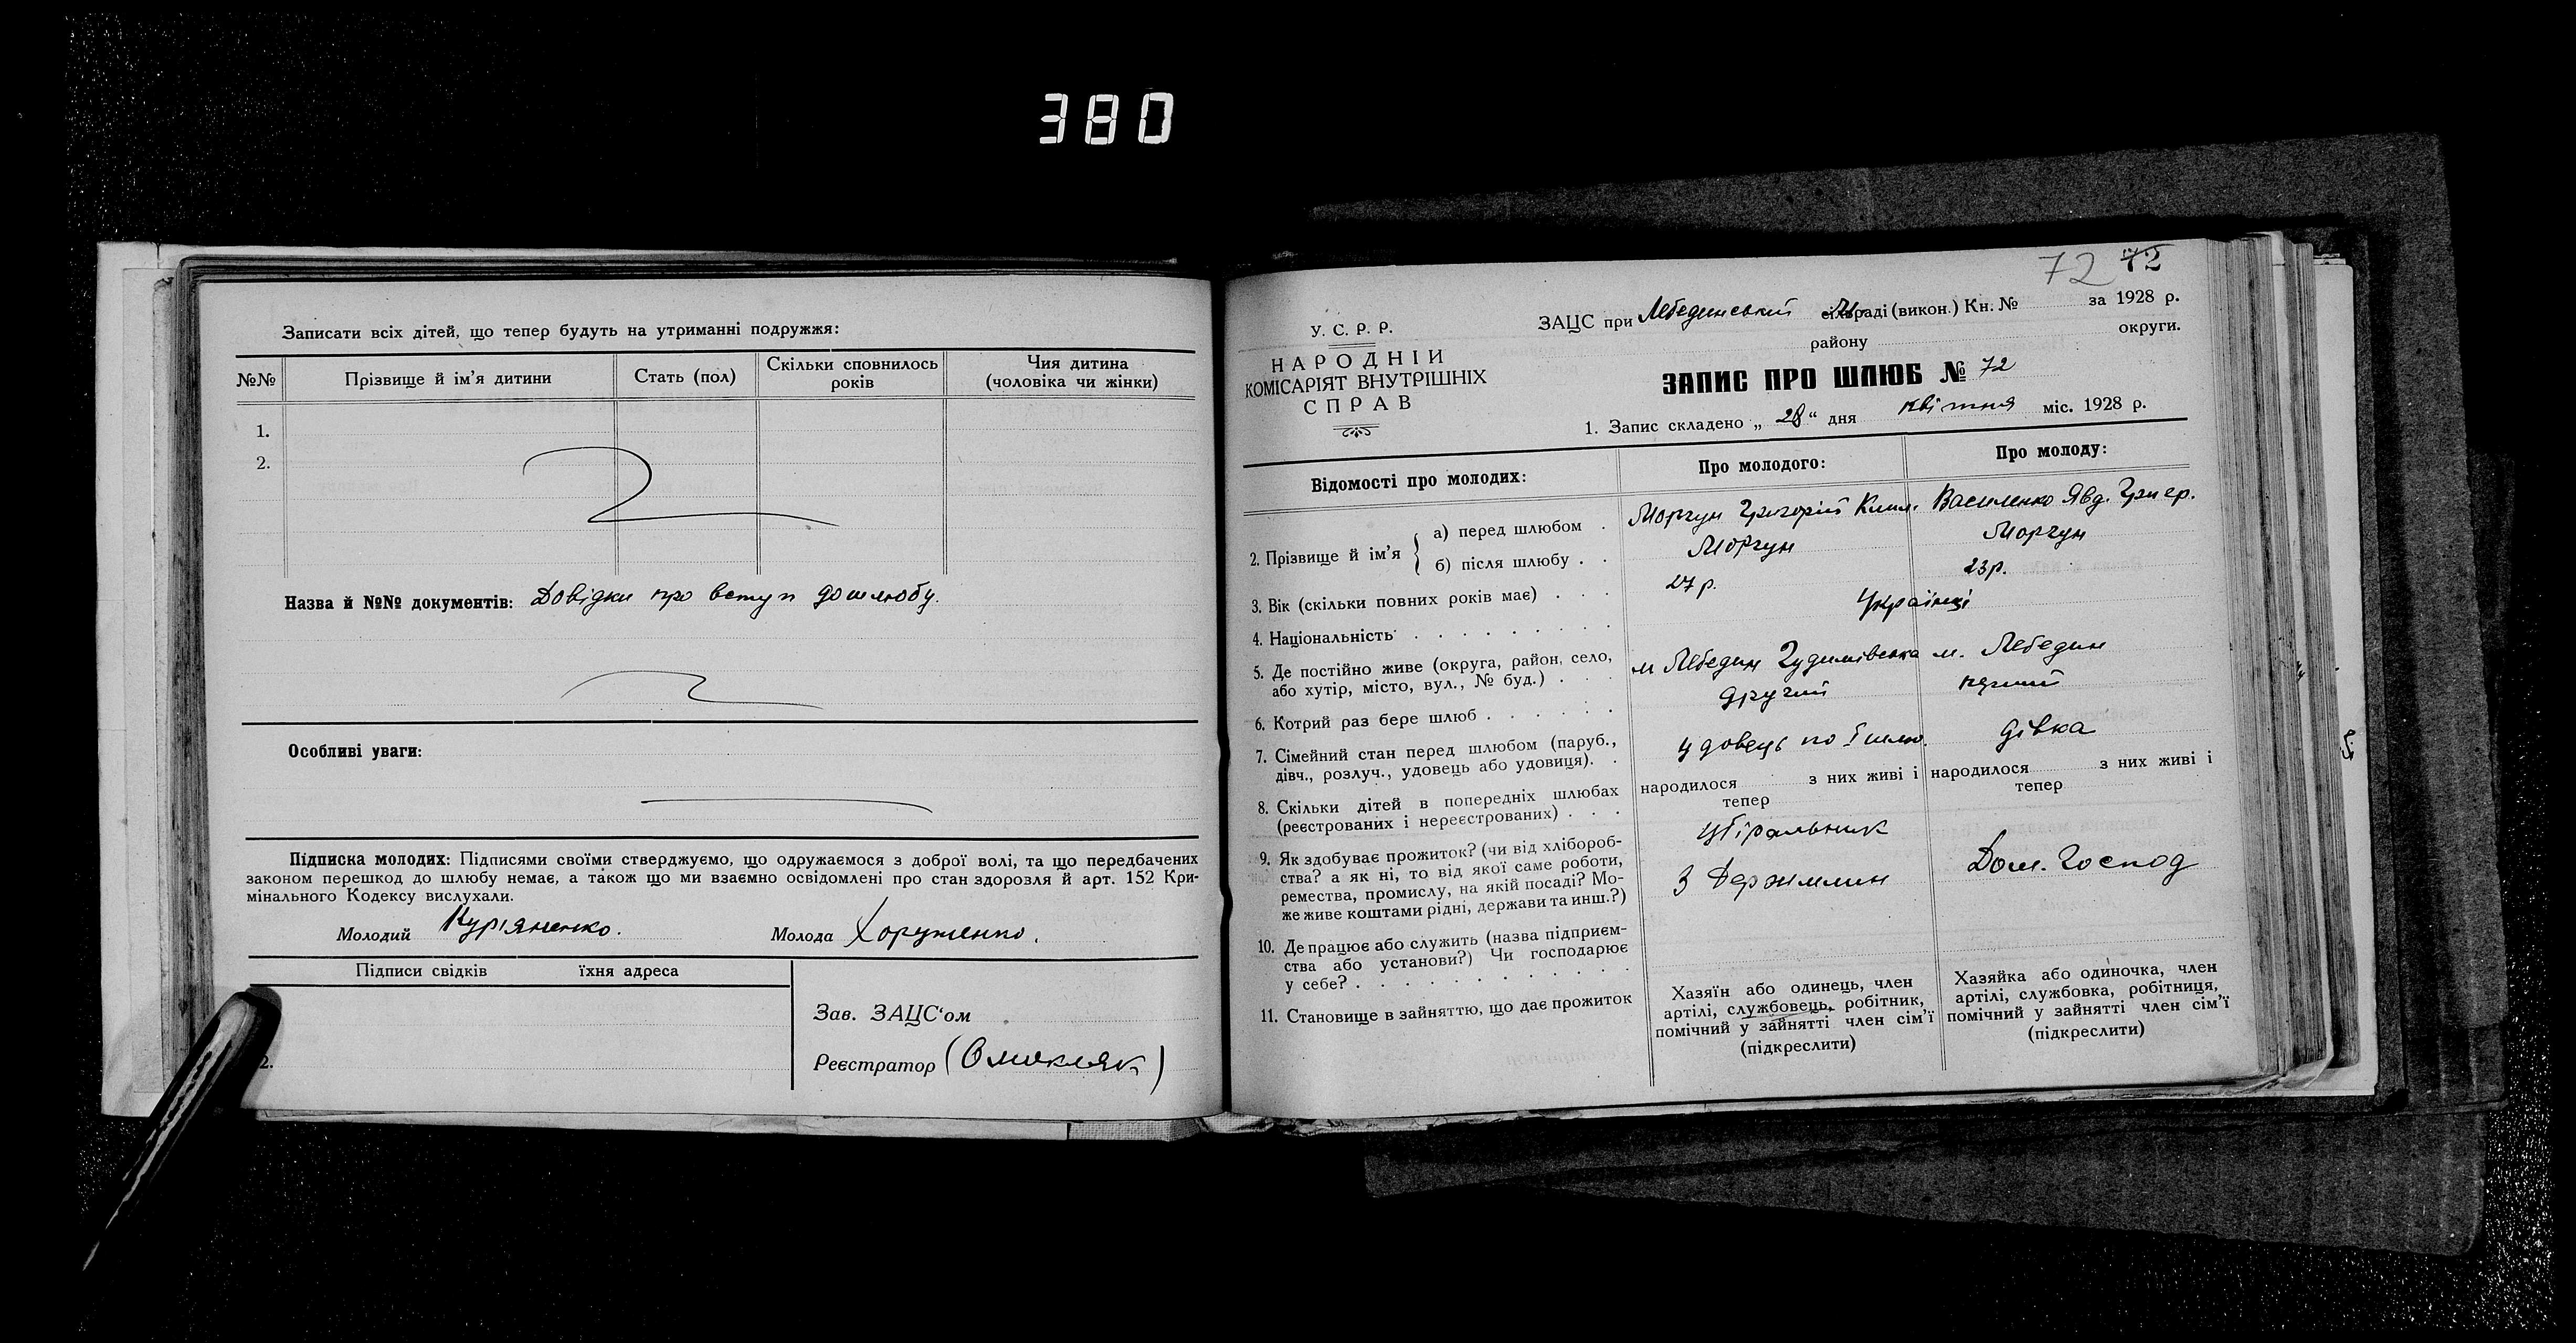 380
Записати всіх дітей, що тепер будуть на утриманні подружжя:
№№ Прізвище й ім'я дитини Стать (пол) Скільки сповнилось років Чия дитина (чоловіка чи жінки)
1.
2.
Назва й №№ документів: Довідки про вступ до шлюбу.
Особливі уваги:
Підписка молодих: Підписами своїми стверджуємо, що одружаємося з доброї волі, та що передбачених
законом перешкод до шлюбу немає, а також що ми взаємно освідомлені про стан здоровля й арт. 152 Кри-
мінального Кодексу вислухали.
Молодий Курʼяненко. Молода Хоруженко.
Підписи свідків їхня адреса
2.
Зав. ЗАЦС'ом
Реєстратор
72 72
У. С. Р. Р.
НАРОДНІЙ
КОМІСАРІЯТ ВНУТРІШНІХ
СПРАВ
ЗАЦС при Лебединський раді (викон.) Кн. № за 1928 р.
району округи.
ЗАПИС ПРО ШЛЮБ № 72
1. Запис складено „ 28 “ дня квітня міс. 1928 р.
Відомості про молодих: Про молодого: Про молоду:
2. Прізвище й ім'я
а) перед шлюбом . Моргун Григорій Василенко Явд. Григор.
б) після шлюбу . . Моргун Моргун
3. Вік (скільки повних років має) . . . 27 р. 23 р.
4. Національність Українці
5. Де постійно живе (округа, район, село,
або хутір, місто, вул., № буд.) . . . м Лебедин Гудимівська м. Лебедин
6. Котрий раз бере шлюб . . . . . . другий перший
7. Сімейний стан перед шлюбом (паруб.,
дівч., розлуч., удовець або удовиця). . удовець по дівка
8. Скільки дітей в попередніх шлюбах
(реєстрованих і нереєстрованих) . . .
народилося з них живі і тепер
народилося з них живі і тепер
9. Як здобуває прожиток? (чи від хлібороб-
ства? а як ні, то від якої саме роботи,
ремества, промислу, на якій посаді? Мо-
же живе коштами рідні, держави та инш.?)
убіральник
З Держмлин
Дом. Господ
10. Де працює або служить (назва підприєм-
ства або установи?) Чи господарює
у себе? . . . . . . . . . .
11. Становище в зайняттю, що дає прожиток
Хазяїн або одинець, член
артілі, службовець, робітник,
помічний у зайнятті член сім'ї
(підкреслити)
Хазяйка або одиночка, член
артілі, службовка, робітниця,
помічний у зайнятті член сім'ї
(підкреслити)